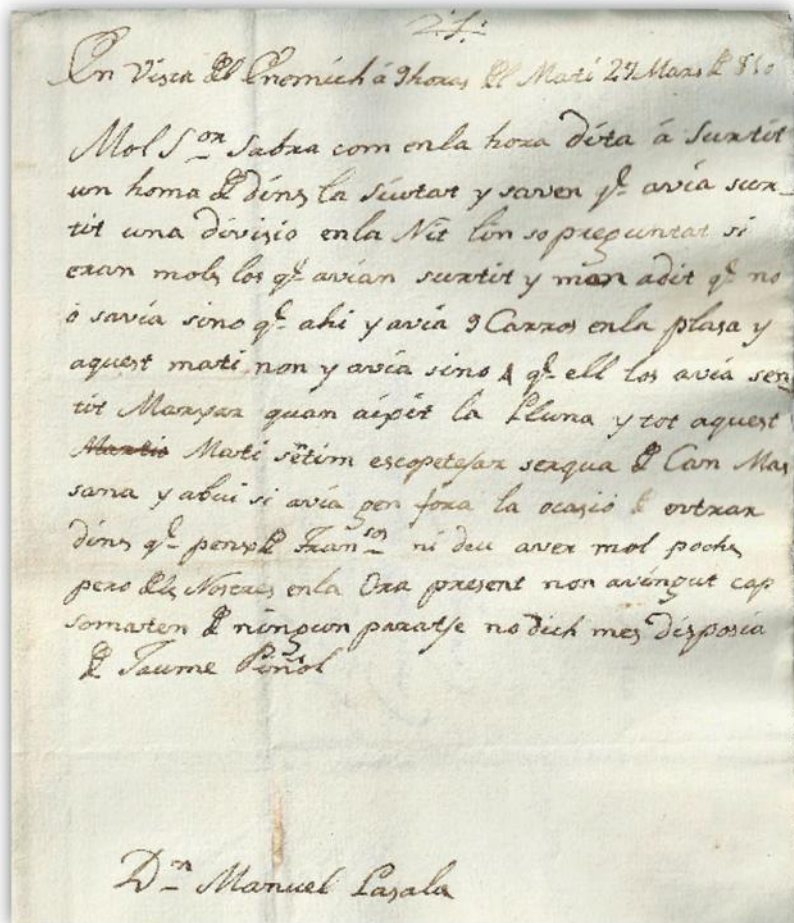 2.ª 1.ª
En Vista dl Enemich á 9 horas dl Matí 27 Mars d 810
Mol S.or Sabra com en la hora dita á Surtit
un homa d dins la Siutat y saven q.e avia sur-
tit una divisio en la Nit lin so preguntat si
eran mols los q.e avian surtit y man adit q.e no
o savia sino q.e ahi y avia 9 Carros en la plasa y
aquest mati non y avia sino 4 q.e ell los avia sen
tit Marxar quan aixit la Lluna y tot aquest
Matí sentim escopetejar serqua d Can Mas
sana y abui si avia gen fora la ocasió d entrar
dins q.e pens d Fran.sos ni deu aver mol pochs
pero dls Nostres en la Ora present non avingut cap
somaten d ningun paratje no dich mes disposia
d Jaume Piñol
D.n Manuel Lasala